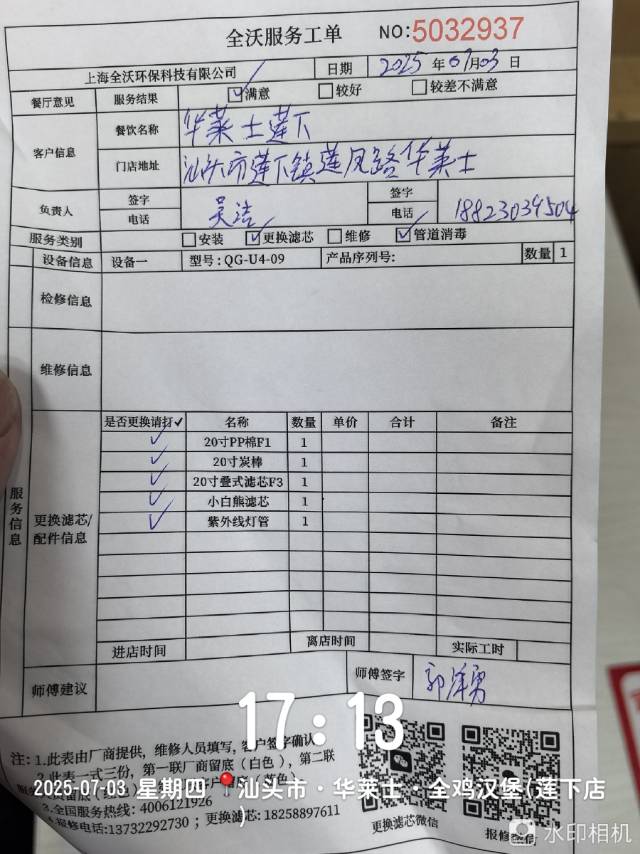 全沃服务工单 NO:5032937
上海全沃环保科技有限公司 日期 2025 年 07 月 03 日
餐厅意见 服务结果 ☑满意 □较好 □较差不满意
客户信息 餐饮名称 华莱士莲下
门店地址 汕头市莲下镇莲凤路华莱士
负责人 签字 吴洁 签字
电话 电话 18823039504
服务类别 □安装 ☑更换滤芯 □维修 ☑管道消毒
设备信息 设备一 型号: QG-U4-09 产品序列号: 数量 1
检修信息
维修信息
服务信息
更换滤芯/配件信息
是否更换请打✓ 名称 数量 单价 合计 备注
✓ 20寸PP棉F1 1
✓ 20寸炭棒 1
✓ 20寸叠式滤芯F3 1
✓ 小白熊滤芯 1
✓ 紫外线灯管 1
进店时间 离店时间 实际工时
师傅建议 师傅签字 郭泽勇
17:13
注: 1.此表由厂商提供, 维修人员填写, 客户签字确认
2.此表一式三份, 第一联厂商留底(白色), 第二联
2025-07-03 星期四 汕头市·华莱士·全鸡汉堡(莲下店)
3.全国服务热线: 4006121926
4.报修电话:13732292730; 更换滤芯:18258897611
更换滤芯微信 报修微信
水印相机